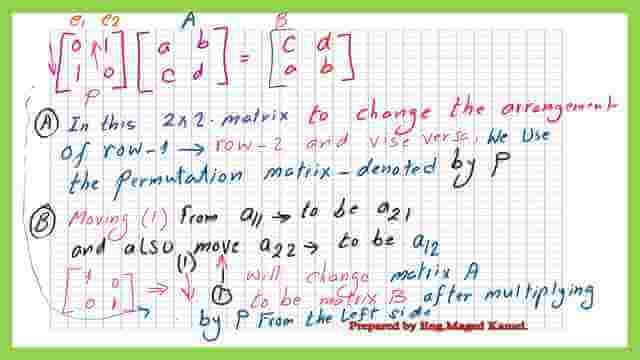 e1 e2 A B
[0 1 [a b = [c d
1 0] c d] a b]
P
(A) In this 2x2-matrix to change the arrangement
of row-1 → row-2 and vise versa, We Use
the Permutation matrix - denoted by P
(B) Moving (1) From a11 → to be a21
and also move a22 → to be a12
[1 0 ⇒ (1) ↓ (1) ↑ will change matrix A
0 1] to be matrix B after multiplying
by P From the Left side
Prepared by Eng.Maged Kamel